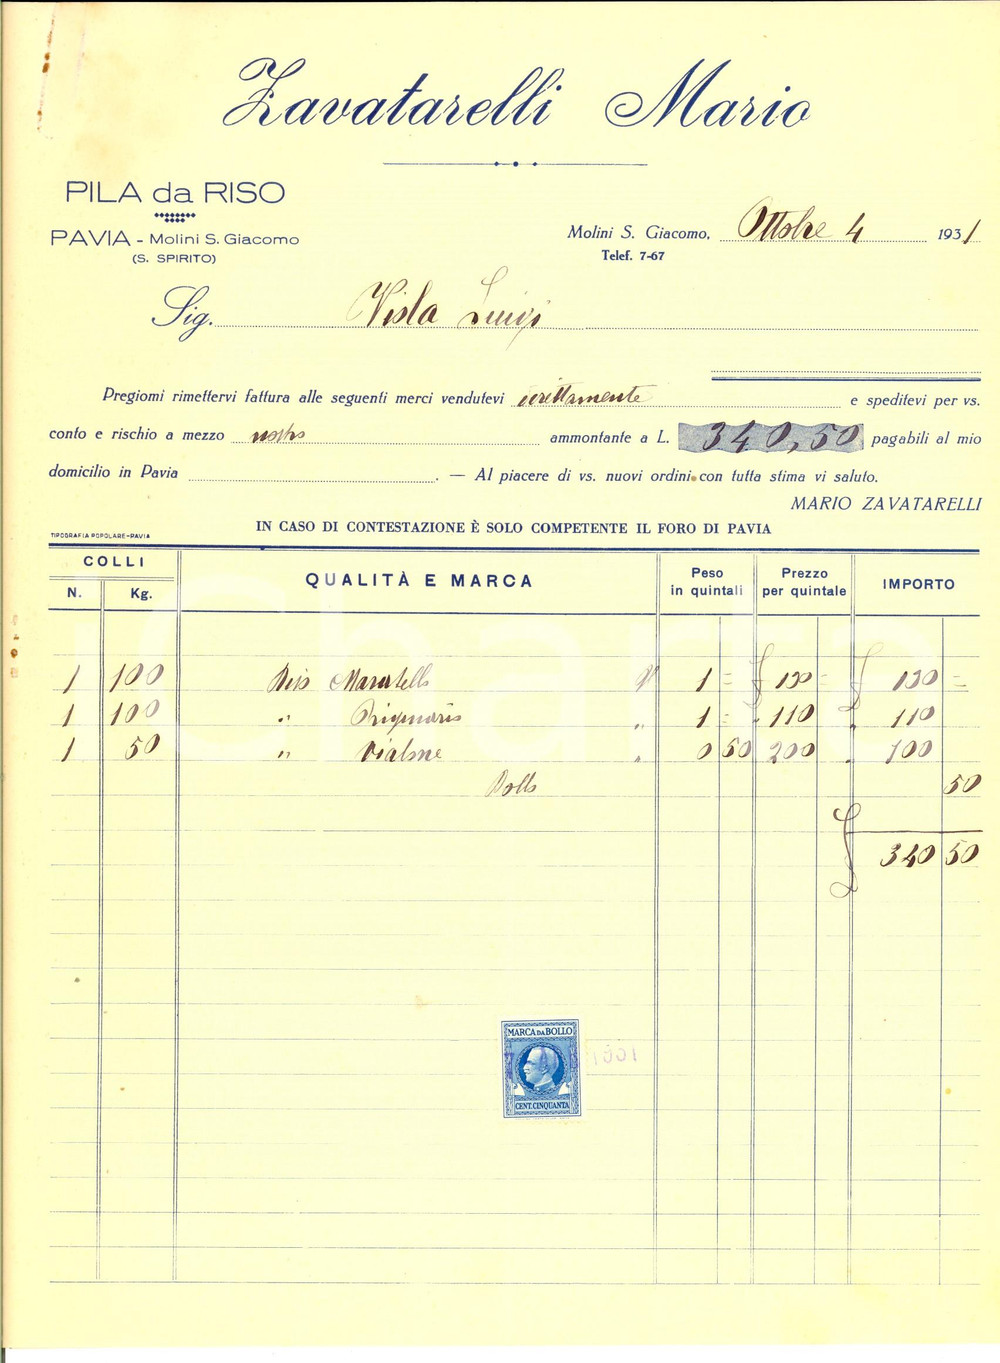 Zavatarelli Mario
PILA da RISO
PAVIA - Molini S. Giacomo
(S. SPIRITO)
Molini S. Giacomo, Ottobre 4 1931
Telef. 7-67
Sig. Viola Luigi
Pregiomi rimettervi fattura alle seguenti merci vendutevi direttamente e speditevi per vs.
conto e rischio a mezzo nostro ammontante a L. 340,50 pagabili al mio
domicilio in Pavia . — Al piacere di vs. nuovi ordini con tutta stima vi saluto.
MARIO ZAVATARELLI
IN CASO DI CONTESTAZIONE È SOLO COMPETENTE IL FORO DI PAVIA
TIPOGRAFIA POPOLARE-PAVIA
COLLI QUALITÀ E MARCA Peso in quintali Prezzo per quintale IMPORTO
N. Kg.
1 100 Riso Maratelli 1 = £ 130 = £ 130 =
1 100 " Originario " 1 = " 110 " 110
1 50 " Vialone " 0 50 200 " 100
Bollo 50
£ 340 50
MARCA DA BOLLO
1931
CENT. CINQUANTA